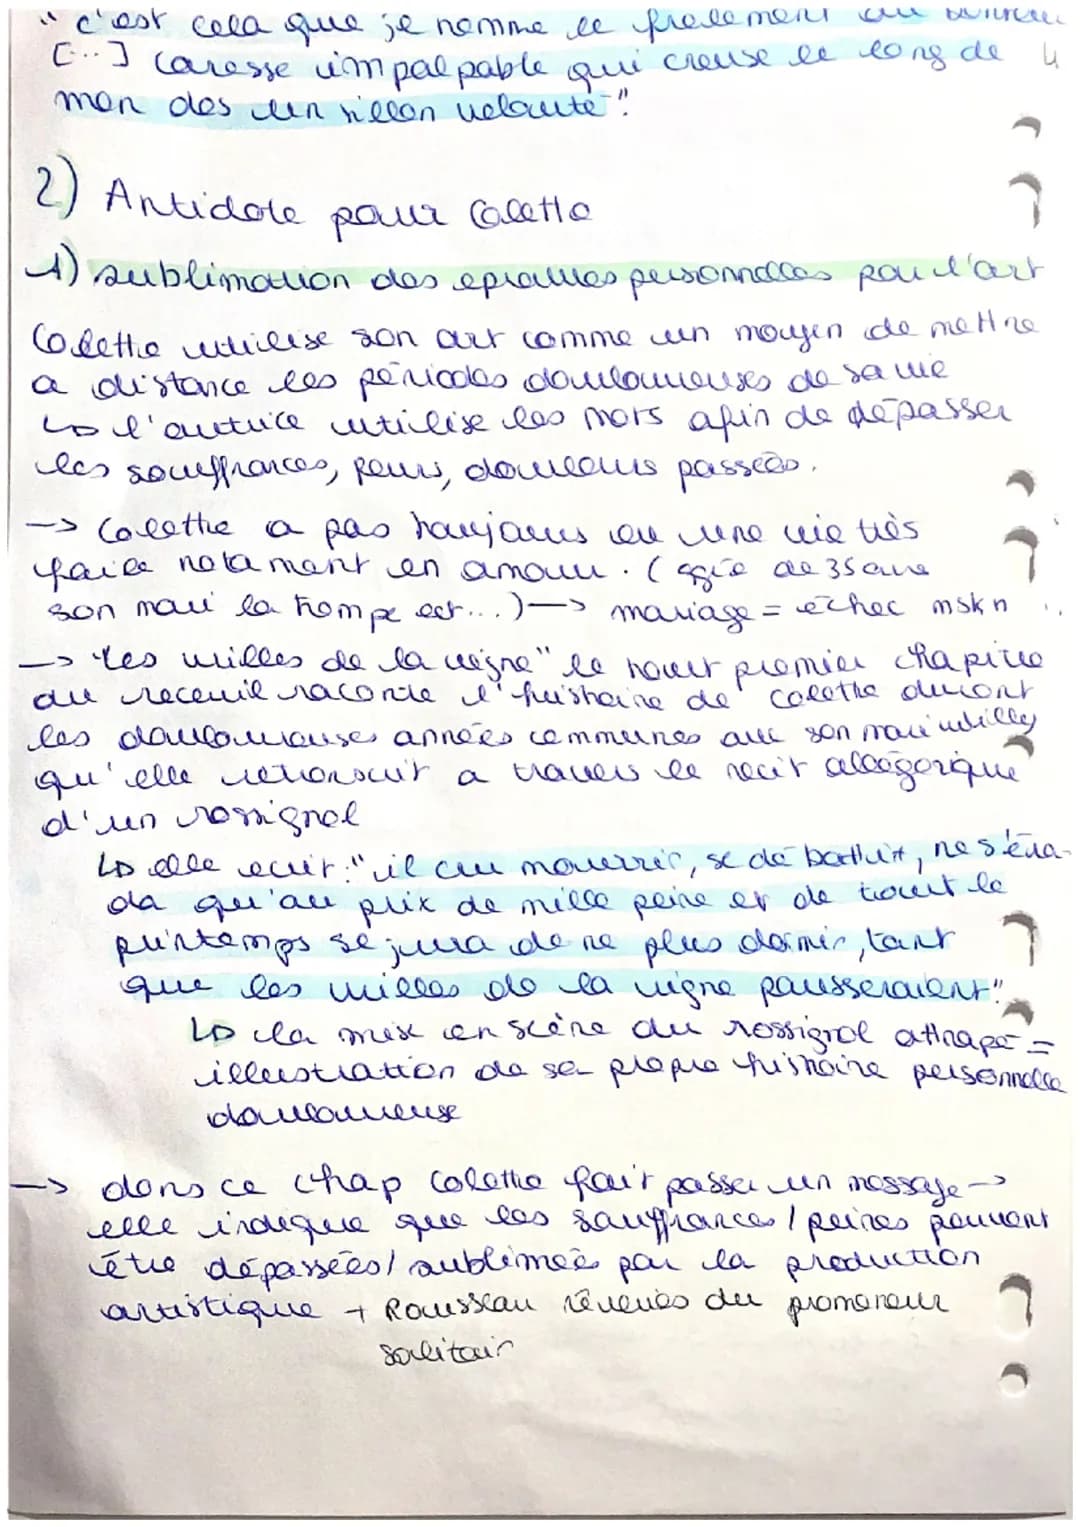 "c'est cela que je nomme le frôlement du bonheur
[...] caresse impalpable qui creuse le long de
mon dos un sillon velouté".
4
2) Antidote pour Colette
1) sublimation des epreuves personnelles par l'art
Colette utilise son art comme un moyen de mettre
a distance les périodes douloureuses de sa vie
↳ l'autrice utilise les mots afin de dépasser
les souffrances, peurs, douleurs passées.
-> Colette a pas toujours eu une vie très
facile notament en amour. ( de 35 ans
son mari la trompe ect...) -> mariage = échec mskn
-> "les vrilles de la vigne" le tout premier chapitre
du receuil raconte l'histoire de Colette durant
les douloureuses années communes avec son mari willy
qu'elle retranscrit a travers le recit allégorique
d'un rossignol
↳ elle ecrit: "il cru mourrir, se débattit, ne s'éva-
da qu'au prix de mille peine et de tout le
printemps se jura de ne plus dormir, tant
que les vrilles de la vigne pousseraient"
↳ la mise en scène du rossignol attrapé =
illustration de sa propre histoire personnelle
douloureuse
-> dans ce chap Colette fait passer un message ->
elle indique que les souffrances / peines peuvent
être dépassées/ sublimées par la production
artistique + Rousseau rêveries du promeneur
solitair